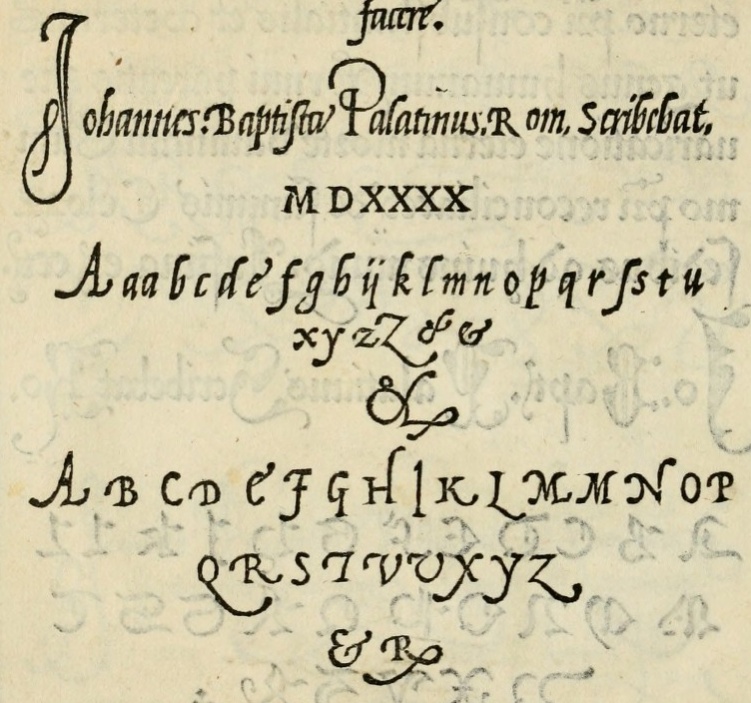 facere.
Johannes. Baptista Palatinus. Rom. Scribebat.
MDXXXX
A a a b c d e f g h i j k l m n o p q r ſ s t u
x y z Z & &
&
A B C D E F G H I K L M M N O P
Q R S T V V X Y Z
& R